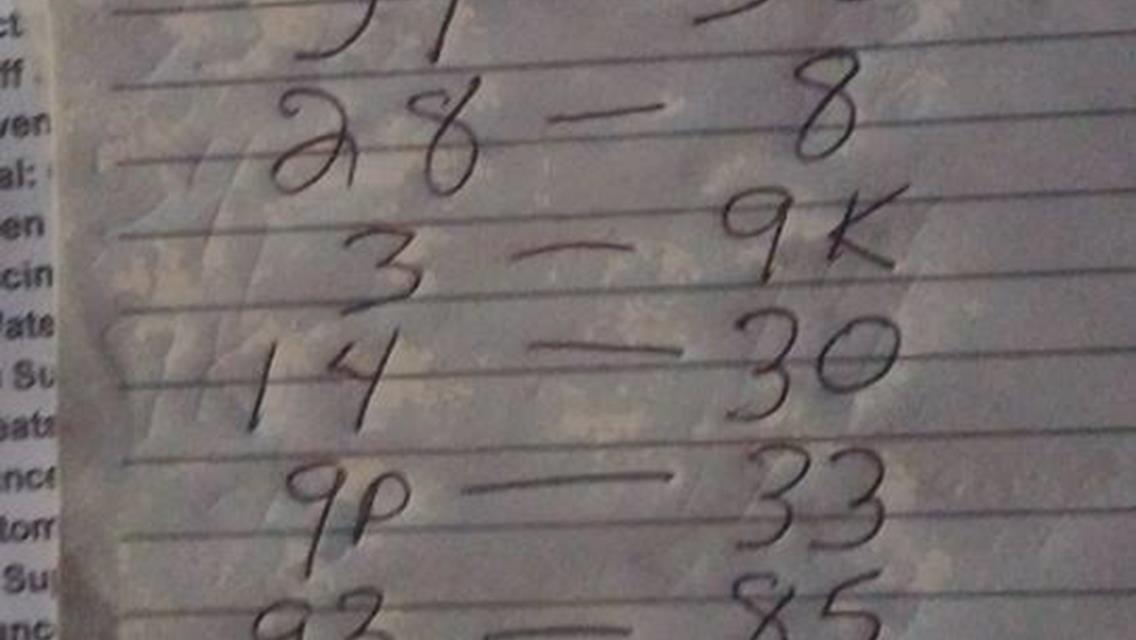 ct
ff
28 — 8
ven
al:
3 — 9K
en
cin
14 — 30
ate
Su
eats
9p — 33
nce
tom
Su
93 — 85
anc